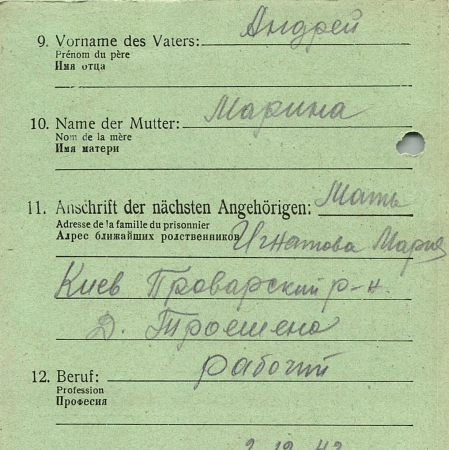 9. Vorname des Vaters: Андрей
Prénom du père
Имя отца
10. Name der Mutter: Марина
Nom de la mère
Имя матери
11. Anschrift der nächsten Angehörigen: Мать
Adresse de la famille du prisonnier
Адрес ближайших родственников Игнатова Мария
Киев Проварский р-н.
Д. Троешено
12. Beruf: рабочий
Profession
Професия